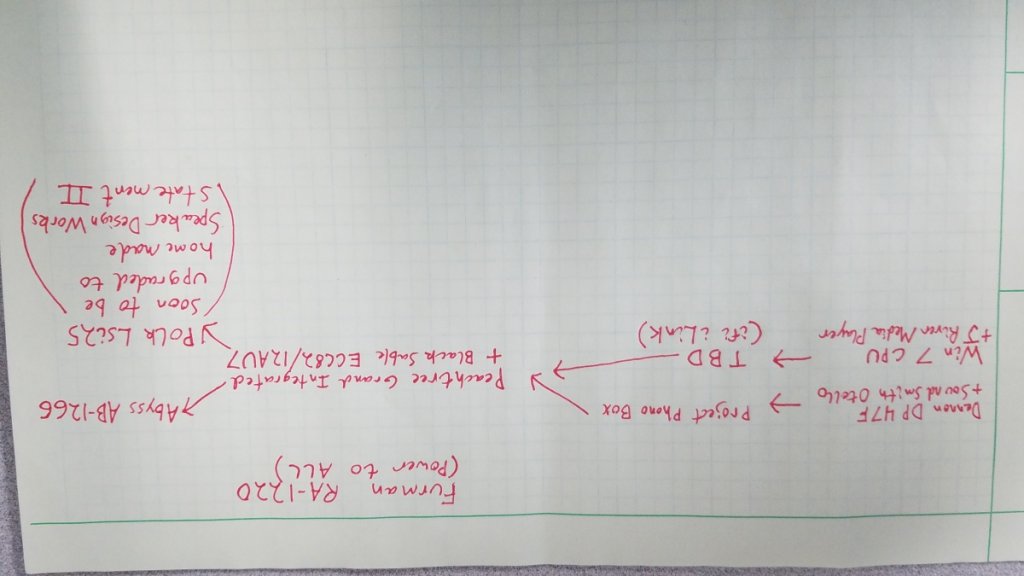 Furman RA-1220
(Power to ALL)
Dennon DP 47F
+ Sound Smith Otello
Project Phono Box
Win 7 CPU
+ J River Media Player
TBD
(ifi iLink)
Peachtree Grand Integrated
+ Black Sable ECC82/12AU7
Abyss AB-1266
Polk LSi25
(Soon to be
upgraded to
home made
Speaker Design Works
Statement II)